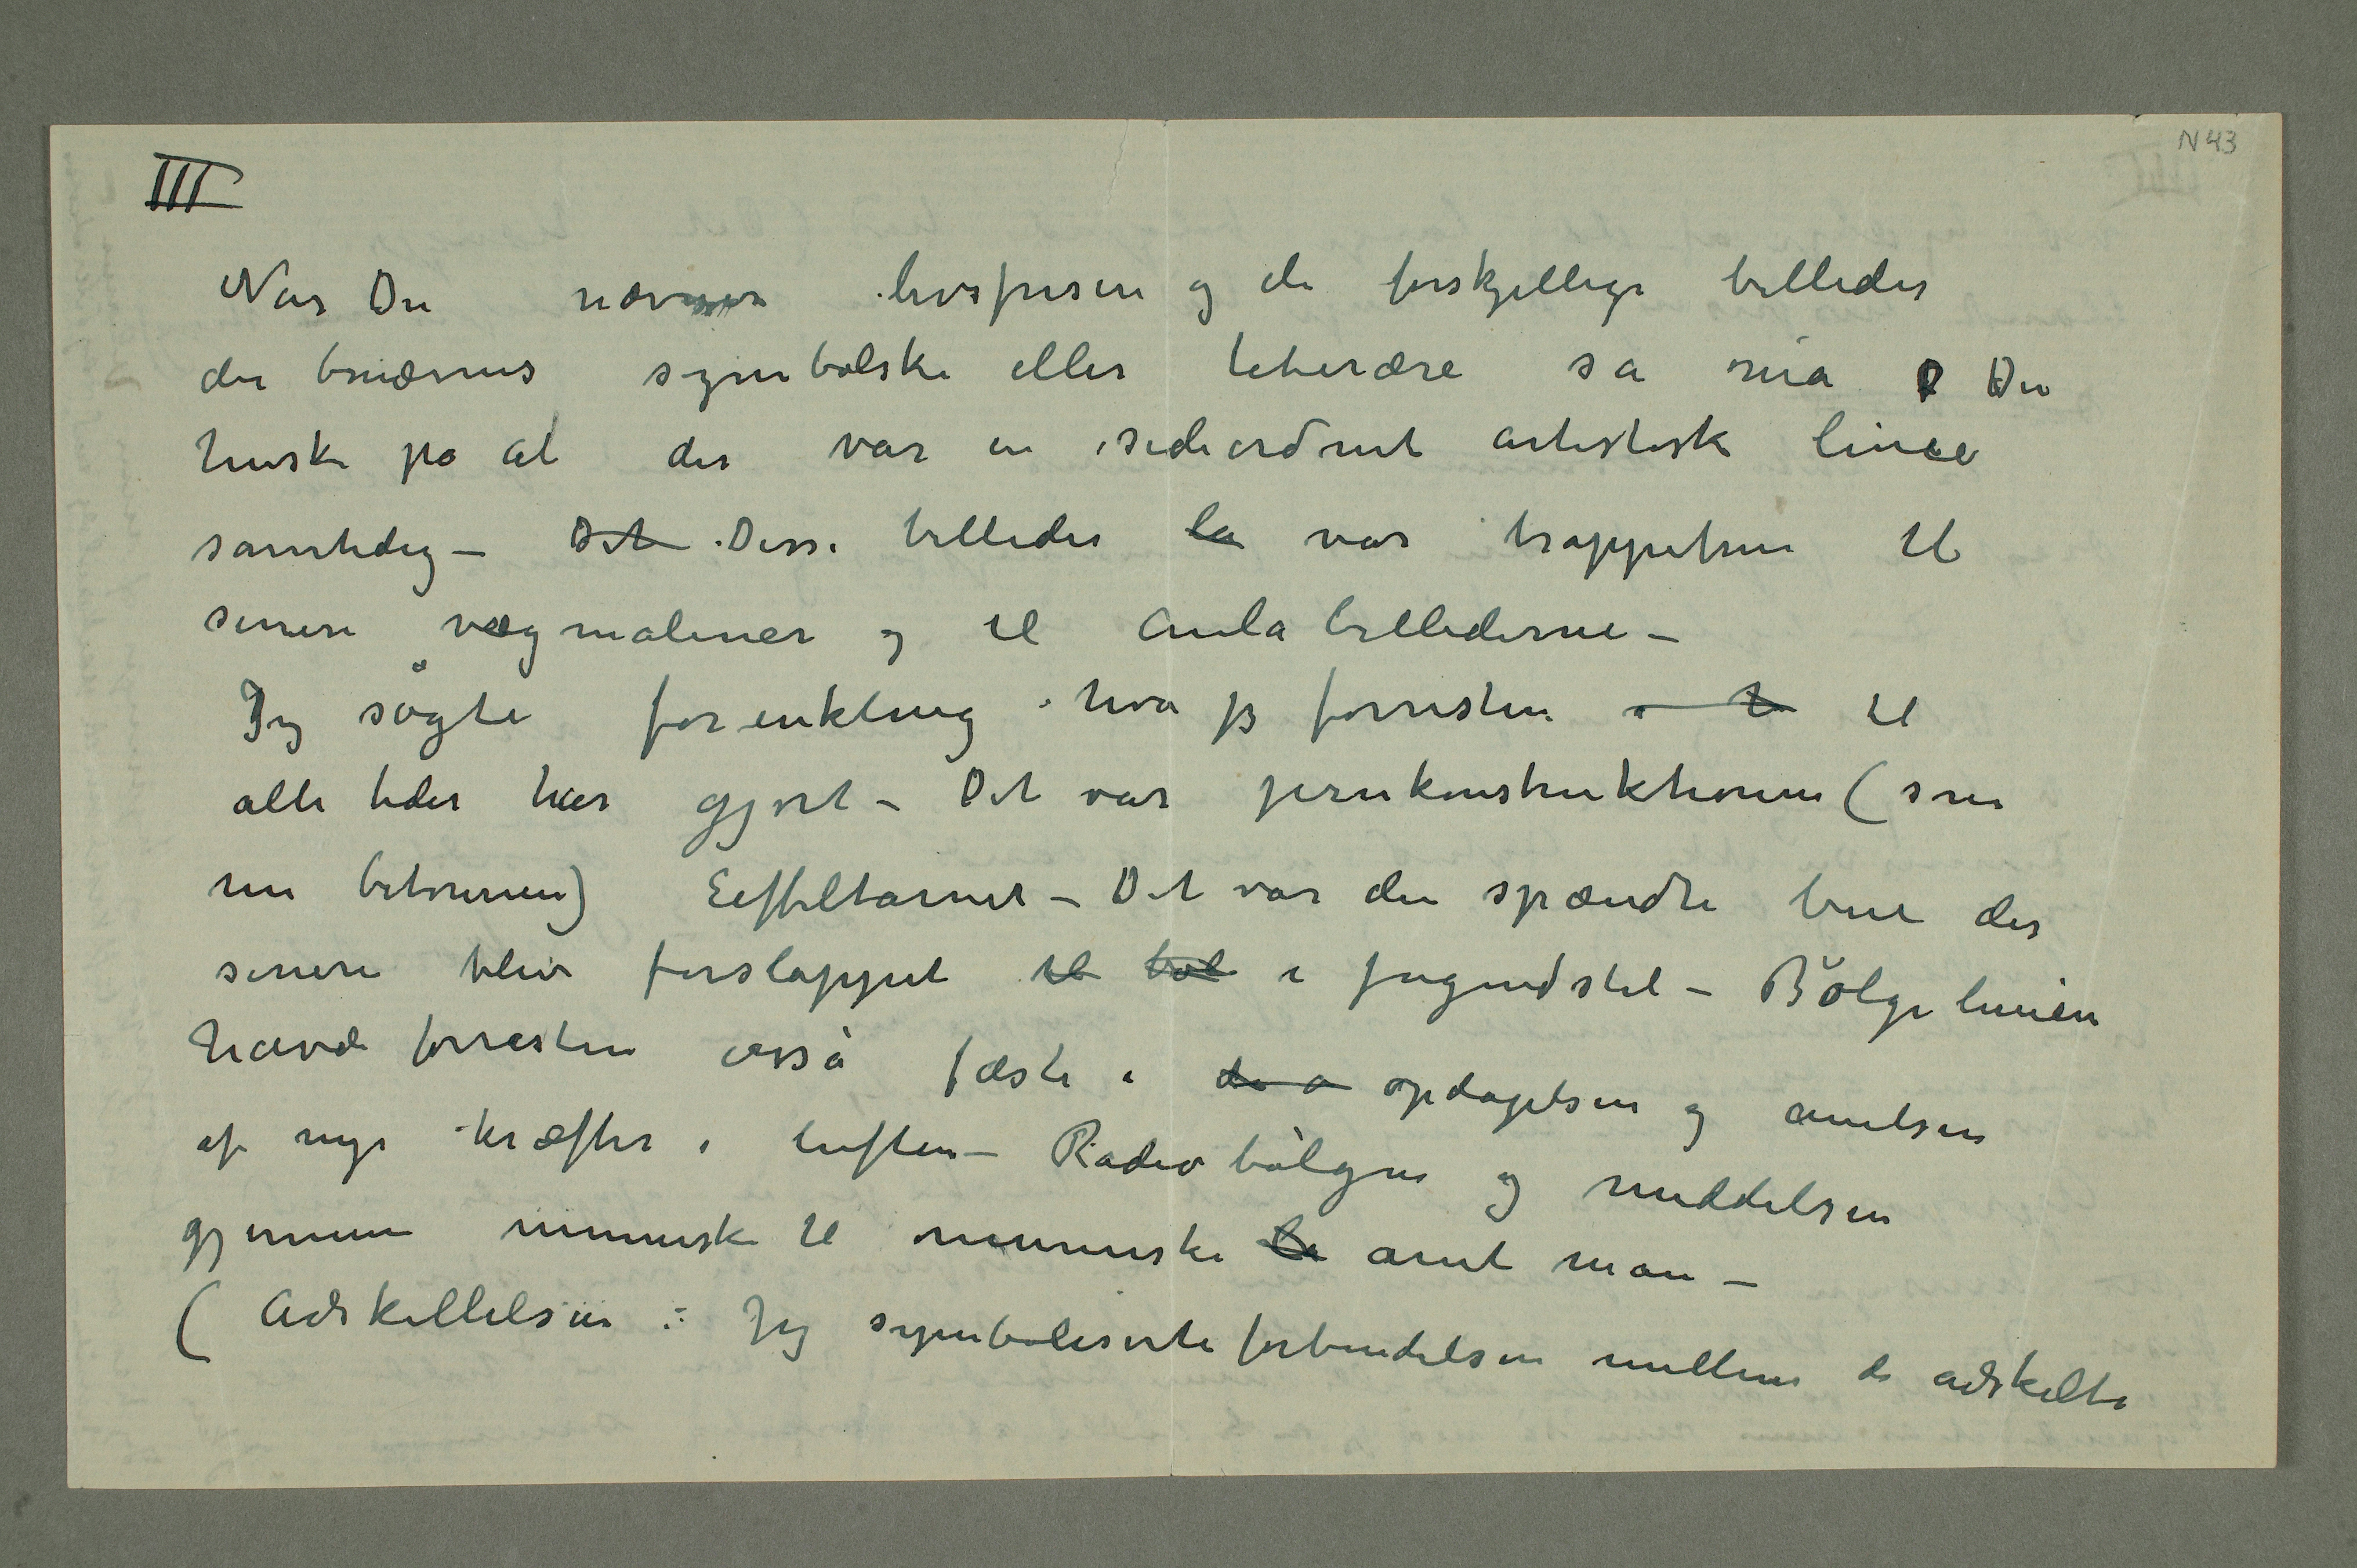 N 43
III
Når Du nævner livsfrisen og de forskjellige billeder
der benævnes symbolske eller leterære så må Du
huske på at der var en sideordnet artistisk linie
samtidig – Det Disse billeder la var trappetrin til
senere vægmaliner og til Aulabillederne –
Jeg søgte forenkling hva jeg forresten til
alle tider har gjort – Det var jernkonstruktionen (som
nu betonnen) Eiffeltårnet – Det var den spændte bue der
senere blev forslappet til bøl i Jugendstil – Bølgelinien
havde forresten også fæste i de a opdagelsen og anelsen
af nye kræfter i luften – Radiobølgen og meddelsen
gjennem menneske til menneske anet man –
(Adskillelsen : Jeg symboliserte forbindelsen mellem de adskilte